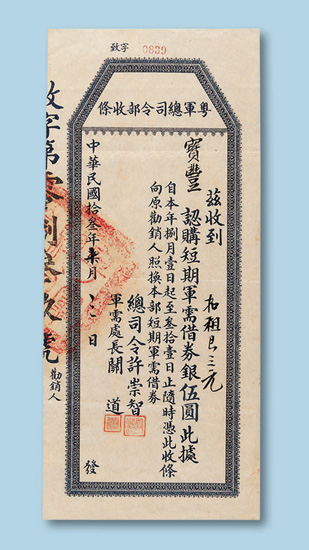 致字 0839
粵軍總司令部收條
茲收到
租艮三元
寶豐 認購短期軍需借券銀伍圓此據
自本年捌月壹日起至叁拾壹日止隨時憑此收條
向原勸銷人照換本部短期軍需借券
總司令許崇智
軍需處長關道
發
中華民國拾叁年柒月 日
勸銷人
致字第零捌叁玖號